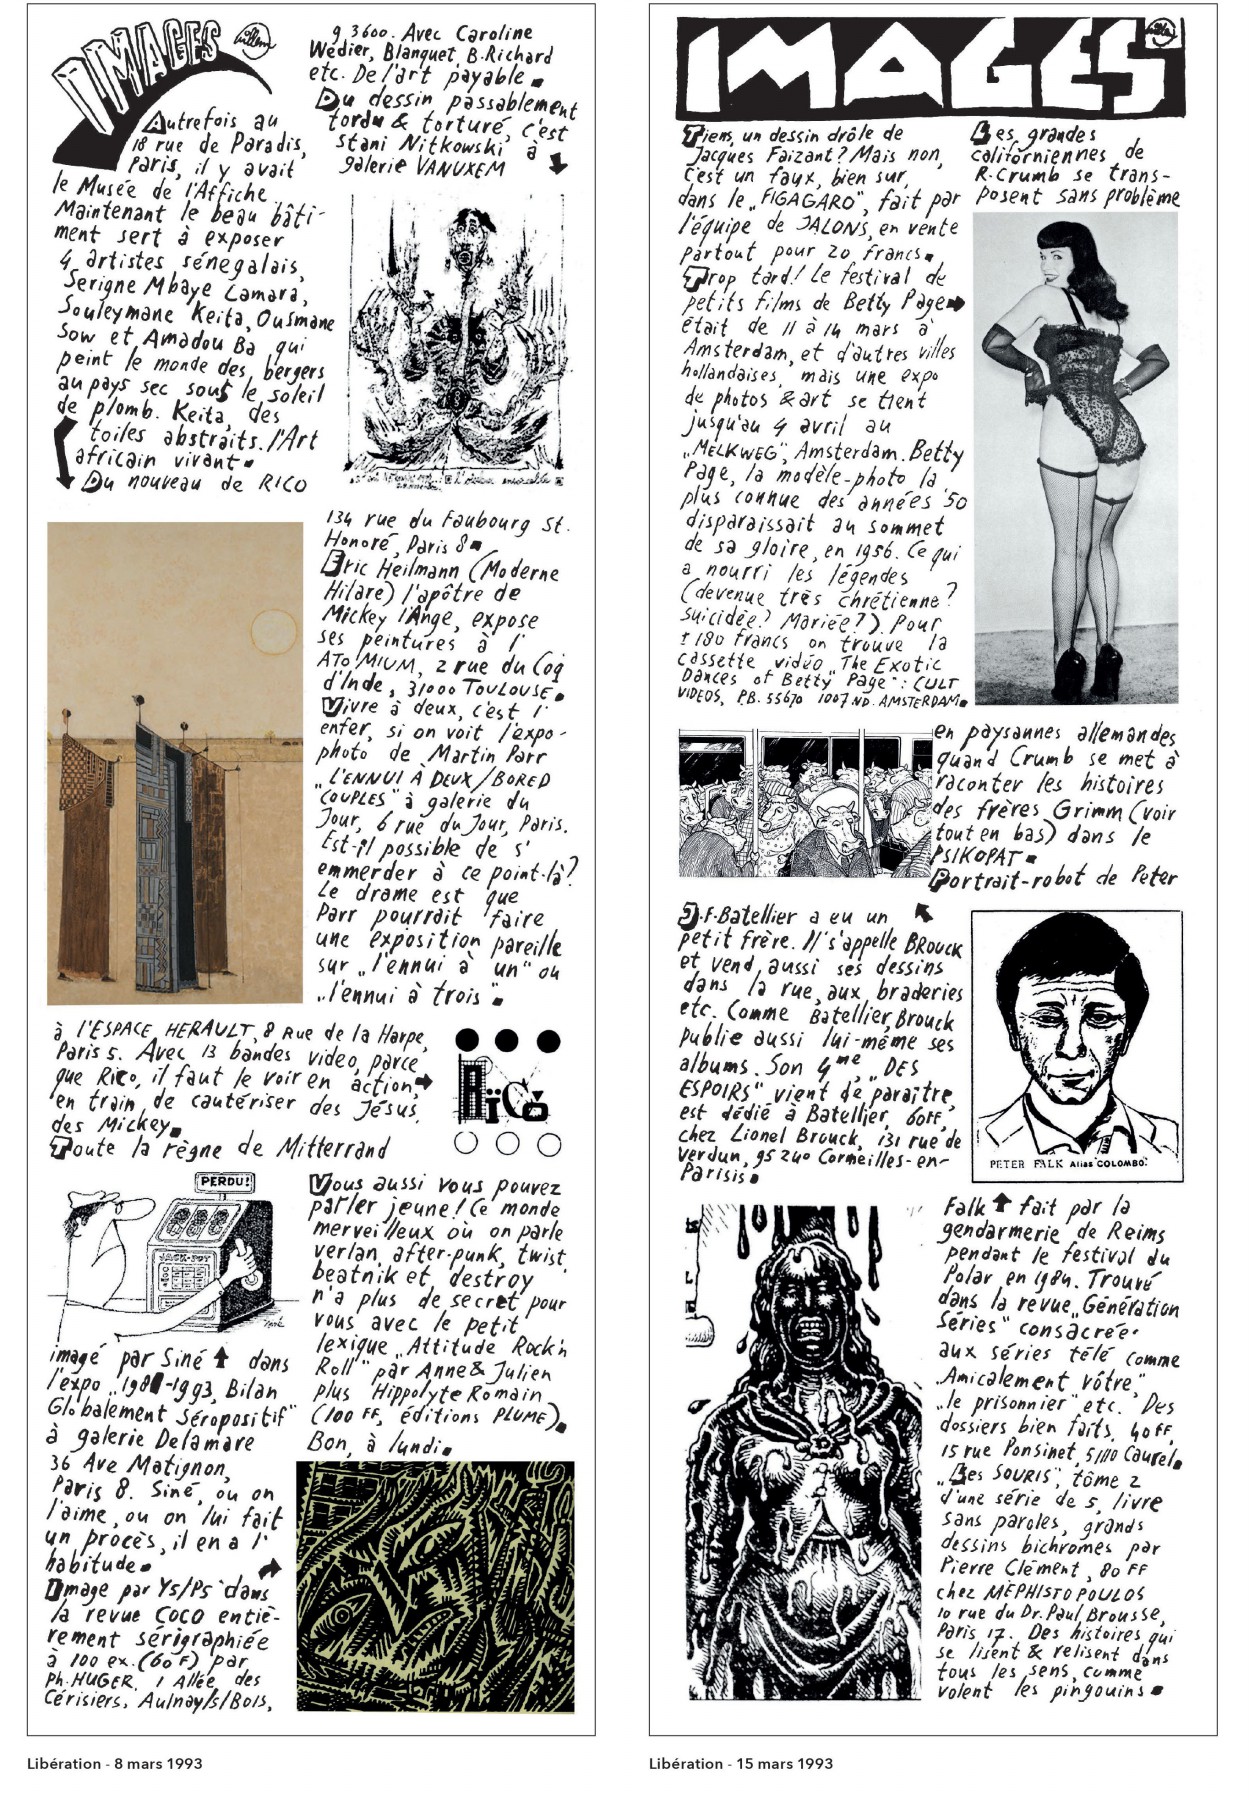 IMAGES
Willem
Autrefois au
18 rue de Paradis,
Paris, il y avait
le Musée de l'Affiche
Maintenant le beau bâti-
ment sert à exposer
4 artistes sénegalais,
Serigne Mbaye Camara,
Souleymane Keita, Ousmane
Sow et Amadou Ba qui
peint le monde des bergers
au pays sec sous le soleil
de plomb. Keita, des
toiles abstraits. l'Art
africain vivant.
Du nouveau de RICO
à l'ESPACE HERAULT, 8 Rue de la Harpe,
Paris 5. Avec 13 bandes video, parce
que Rico, il faut le voir en action,
en train de cautériser des Jésus,
des Mickey.
RiCo
Toute la règne de Mitterrand
PERDU!
JACK-POT
imagé par Siné dans
l'expo „1981-1993, Bilan
Globalement Séropositif"
à galerie Delamare
36 Ave Matignon,
Paris 8. Siné, ou on
l'aime, ou on lui fait
un procès, il en a l'
habitude.
Image par Ys/Ps dans
la revue COCO entiè-
rement sérigraphiée
à 100 ex. (60 F) par
Ph. HUGER, 1 Allée des
Cérisiers, Aulnay/s/Bois,
93600. Avec Caroline
Wedier, Blanquet, B.Richard
etc. De l'art payable.
Du dessin passablement
tordu & torturé, c'est
Stani Nitkowski à
galerie VANUXEM
134 rue du Faubourg St.
Honoré, Paris 8.
Eric Heilmann (Moderne
Hilare) l'apôtre de
Mickey l'Ange, expose
ses peintures à l'
ATO'MIUM, 2 rue du Coq
d'Inde, 31000 TOULOUSE.
Vivre à deux, c'est l'
enfer, si on voit l'expo-
photo de Martin Parr
„L'ENNUI A DEUX / BORED
COUPLES" à galerie du
Jour, 6 rue du Jour, Paris.
Est-il possible de s'
emmerder à ce point-là?
Le drame est que
Parr pourrait faire
une exposition pareille
sur „l'ennui à un" ou
„l'ennui à trois".
Vous aussi vous pouvez
parler jeune! Ce monde
merveilleux où on parle
verlan, after-punk, twist,
beatnik et destroy
n'a plus de secret pour
vous avec le petit
lexique „Attitude Rock'n
Roll" par Anne & Julien
plus Hippolyte Romain
(100 FF, éditions PLUME).
Bon, à lundi.
Libération - 8 mars 1993
IMAGES
Willem
Tiens, un dessin drôle de
Jacques Faizant? Mais non,
C'est un faux, bien sur,
dans le „FIGAGARO", fait par
l'équipe de JALONS, en vente
partout pour 20 francs.
Trop tard! Le festival de
petits films de Betty Page
était de 11 à 14 mars à
Amsterdam, et d'autres villes
hollandaises, mais une expo
de photos & art se tient
jusqu'au 4 avril au
„MELKWEG", Amsterdam. Betty
Page, la modèle-photo la
plus connue des années '50
disparaissait au sommet
de sa gloire, en 1956. Ce qui
a nourri les légendes
(devenue très chrétienne?
suicidée? Mariée?). Pour
± 180 francs on trouve la
cassette vidéo „The Exotic
Dances of Betty Page": CULT
VIDEOS, P.B. 55670 1007 ND. AMSTERDAM.
J.F-Batellier a eu un
petit frère. Il s'appelle BROUCK
et vend aussi ses dessins
dans la rue, aux braderies
etc. Comme Batellier, Brouck
publie aussi lui-même ses
albums. Son 4me, „DES
ESPOIRS" vient de paraître,
est dédié à Batellier, 60FF,
chez Lionel Brouck, 131 rue de
Verdun, 95240 Cormeilles-en-
Parisis.
Les grandes
californiennes de
R. Crumb se trans-
posent sans problème
en paysannes allemandes
quand Crumb se met à
raconter les histoires
des frères Grimm (voir
tout en bas) dans le
PSIKOPAT.
Portrait-robot de Peter
PETER FALK Alias "COLOMBO".
Falk fait par la
gendarmerie de Reims
pendant le festival du
Polar en 1984. Trouvé
dans la revue „Génération
Séries" consacrée
aux séries télé comme
„Amicalement vôtre",
„le prisonnier" etc. Des
dossiers bien faits, 40 FF,
15 rue Ponsinet, 51110 Caurel.
„Les SOURIS", tôme 2
d'une série de 5, livre
sans paroles, grands
dessins bichromes par
Pierre Clément, 80 FF
chez MEPHISTOPOULOS
10 rue du Dr. Paul Brousse,
Paris 17. Des histoires qui
se lisent & relisent dans
tous les sens, comme
volent les pingouins.
Libération - 15 mars 1993